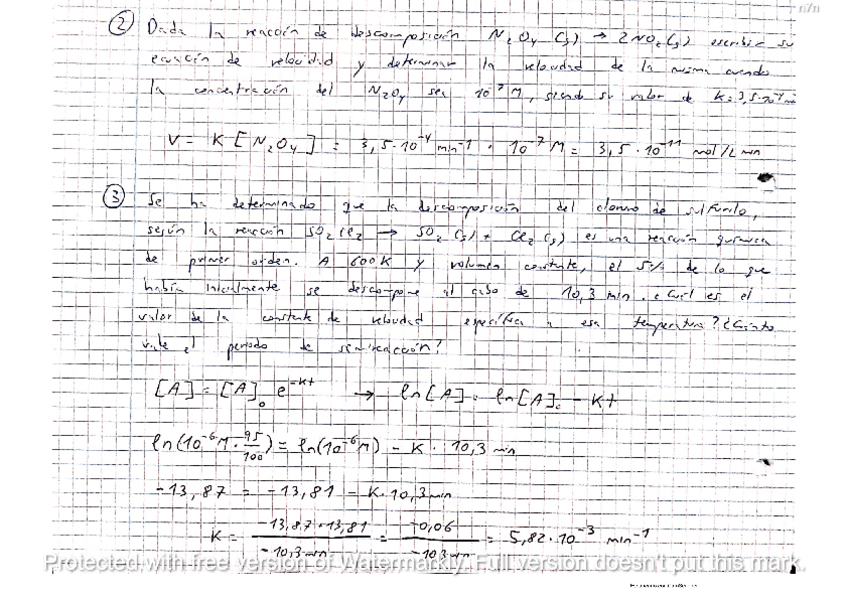 n7n
② Dada la reacción de descomposición N₂O₄ (g) → 2NO₂ (g) escribir su
ecuación de velocidad y determinar la velocidad de la misma cuando
la concentración del N₂O₄ sea 10⁻⁷ M, siendo su valor de K = 3,5·10⁻⁴
V = K [N₂O₄] = 3,5·10⁻⁴ min⁻¹ · 10⁻⁷ M = 3,5·10⁻¹¹ mol/L min
③ Se ha determinado que la descomposición del cloruro de sulfurilo,
según la reacción SO₂Cl₂ → SO₂ (g) + Cl₂ (g) es una reacción química
de primer orden. A 600K y volumen constante, el 5% de lo que
había inicialmente se descompone al cabo de 10,3 min. ¿Cuál es el
valor de la constante de velocidad específica a esa temperatura? ¿Cuánto
vale el periodo de semireacción?
[A] = [A]₀ e⁻ᴷᵗ → ln[A] = ln[A]₀ - Kt
ln(10⁻⁶M · 95/100) = ln(10⁻⁶M) - K · 10,3 min
-13,87 = -13,81 - K·10,3 min
K = -13,87+13,81 / -10,3 min = -0,06 / -10,3 min = 5,82·10⁻³ min⁻¹
Protected with free version of Watermarkly. Full version doesn't put this mark.